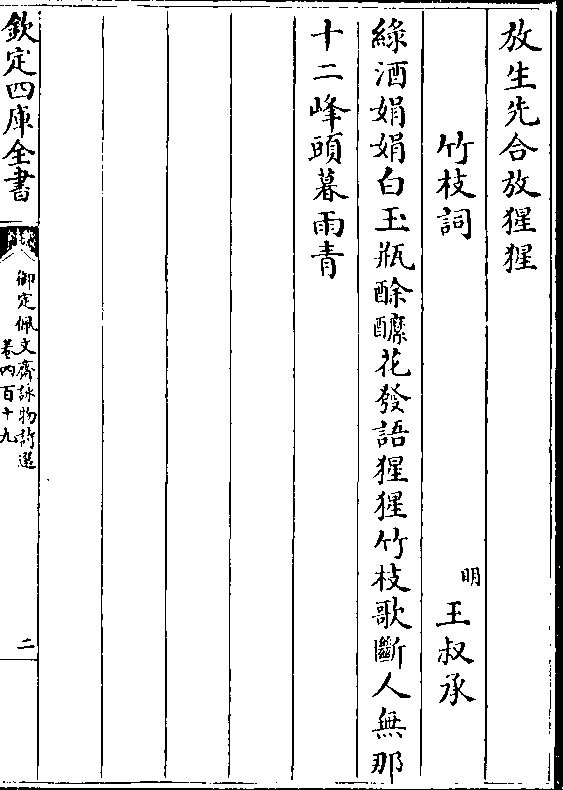 放生先合放猩猩
竹枝詞 明 王叔承
綠酒娟娟白玉瓶酴醿花發語猩猩竹枝歌斷人無那
十二峰頭暮雨青
欽定四庫全書
御定佩文齋詠物詩選
卷四百十九
二